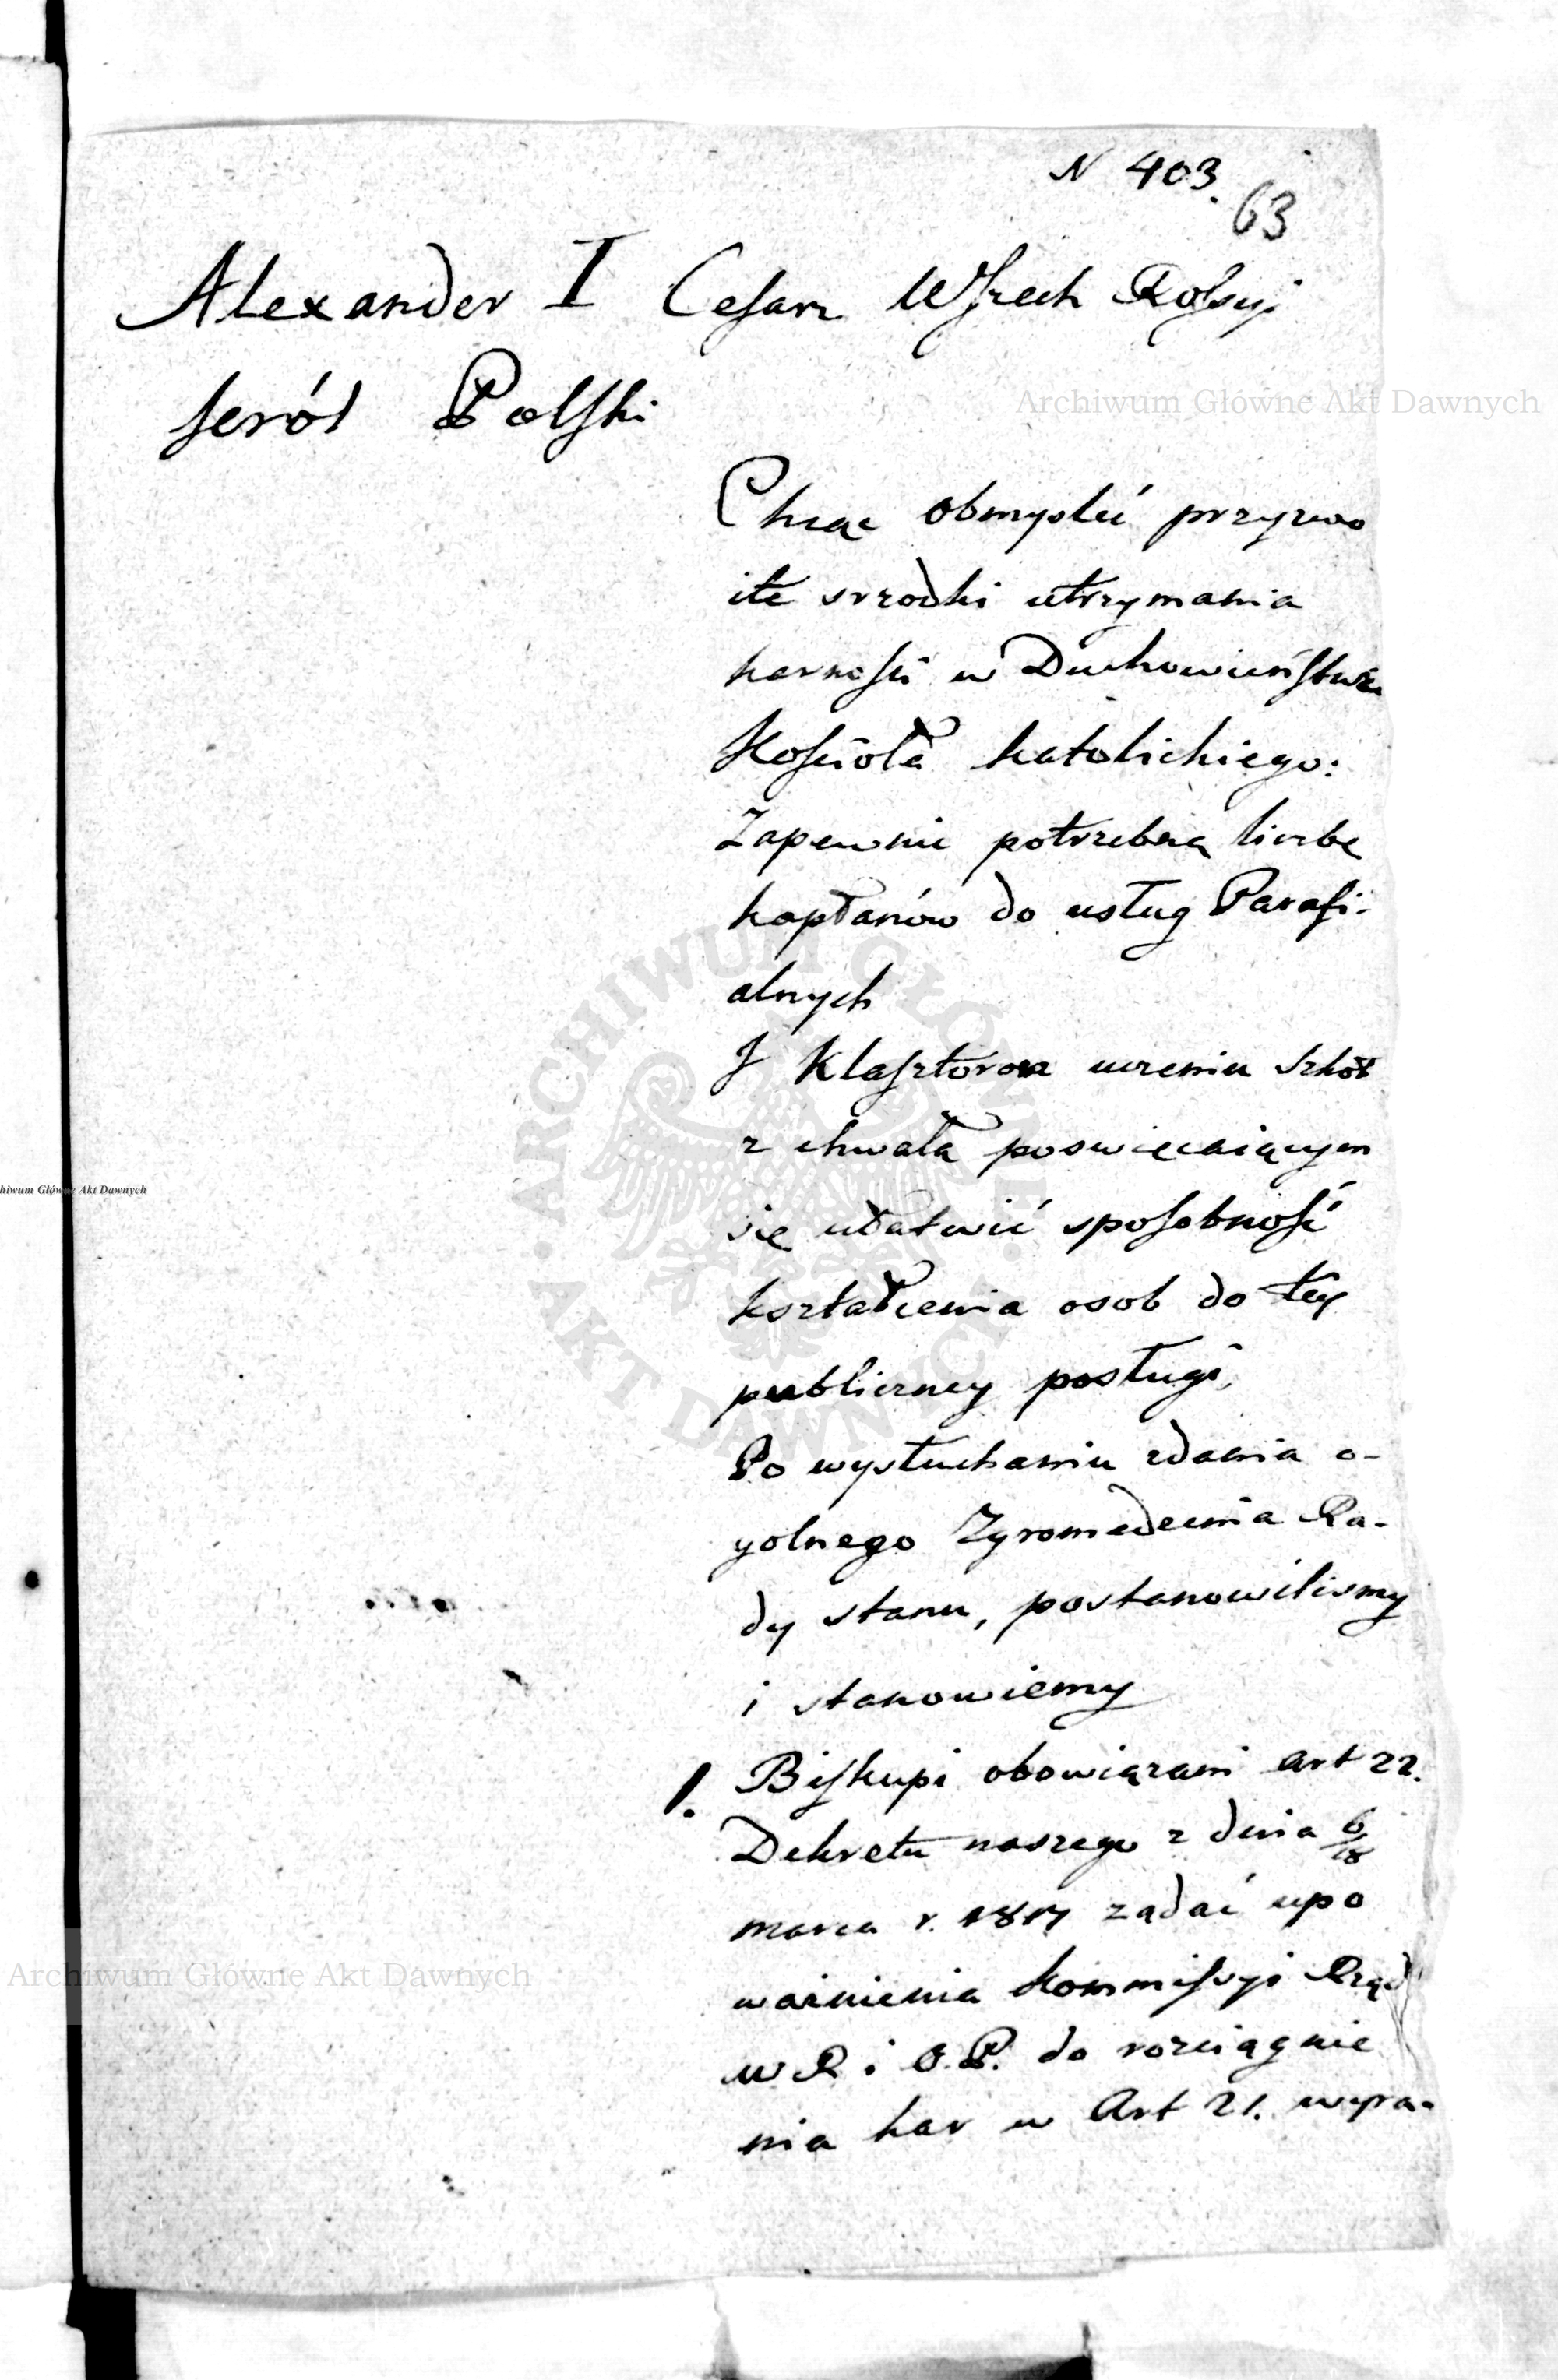 N 403.
63
Alexander I Cesarz Wszech Rossyi
Król Polski
Chcąc obmyslić przyzwo
ite srzodki utrzymania
karności w Duchowieństwie
Kościoła katolickiego:
Zapewnić potrzebną liczbę
kapłanów do usług Parafi-
alnych
I Klasztorom uczeniu szkół
z chwałą poswięcaiącym
się ułatwić sposobność
kształcenia osob do tey
publiczney posługi,
Po wysłuchaniu zdania o-
golnego Zgromadzenia Ra-
dy stanu, postanowilismy
i stanowiemy
1. Biskupi obowiązani art 22.
Dekretu naszego z dnia 6/18
marca r. 1817 ządać upo
ważnienia Kommissyi Rząd
W R i O. P. do rozciągnie
nia kar w Art 21. wyra-
Archiwum Główne Akt Dawnych
hiwum Główne Akt Dawnych
ARCHIWUM GŁÓWNE AKT DAWNYCH
Archiwum Główne Akt Dawnych